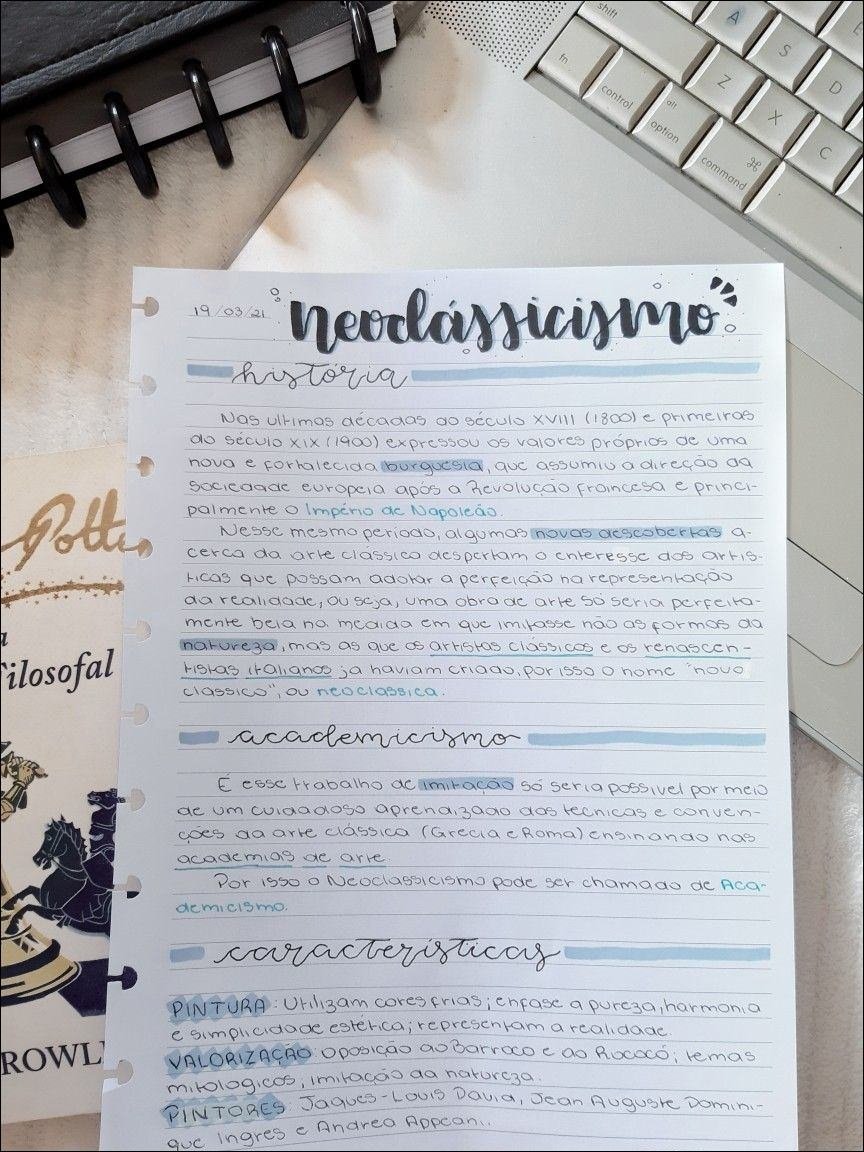 shift
A
S
D
E
fn
control
alt
option
command
⌘
Z
X
C
19/03/21 neoclássicismo
história
Nas ultimas décadas do século XVIII (1800) e primeiras
do século XIX (1900) expressou os valores próprios de uma
nova e fortalecida burguesia, que assumiu a direção da
sociedade europeia após a Revolução francesa e princi-
palmente o Império de Napoleão.
Nesse mesmo período, algumas novas descobertas a-
cerca da arte clássico despertam o enteresse dos artis-
ticas que possam adotar a perfeição na representação
da realidade, ou seja, uma obra de arte só seria perfeita-
mente bela na medida em que imitasse não as formas da
natureza, mas as que os artistas clássicos e os renascen-
tistas italianos ja haviam criado, por isso o nome "novo
classico", ou neoclassica.
academicismo
E esse trabalho de imitação só seria possivel por meio
de um cuidadoso aprendizado das tecnicas e conven-
ções da arte clássica (Grecia e Roma) ensinando nas
academias de arte
Por isso o Neoclassicismo pode ser chamado de Aca-
demicismo.
características
PINTURA: Utilizam cores frias; enfase a pureza, harmonia
e simplicidade estetica; representam a realidade.
VALORIZAÇÃO: oposição ao Barroco e ao Rococó; temas
mitologicos, imitação da natureza.
PINTORES: Jaques-Louis David, Jean Auguste Domini-
que Ingres e Andrea Appeani.
Potte
a
Filosofal
ROWL